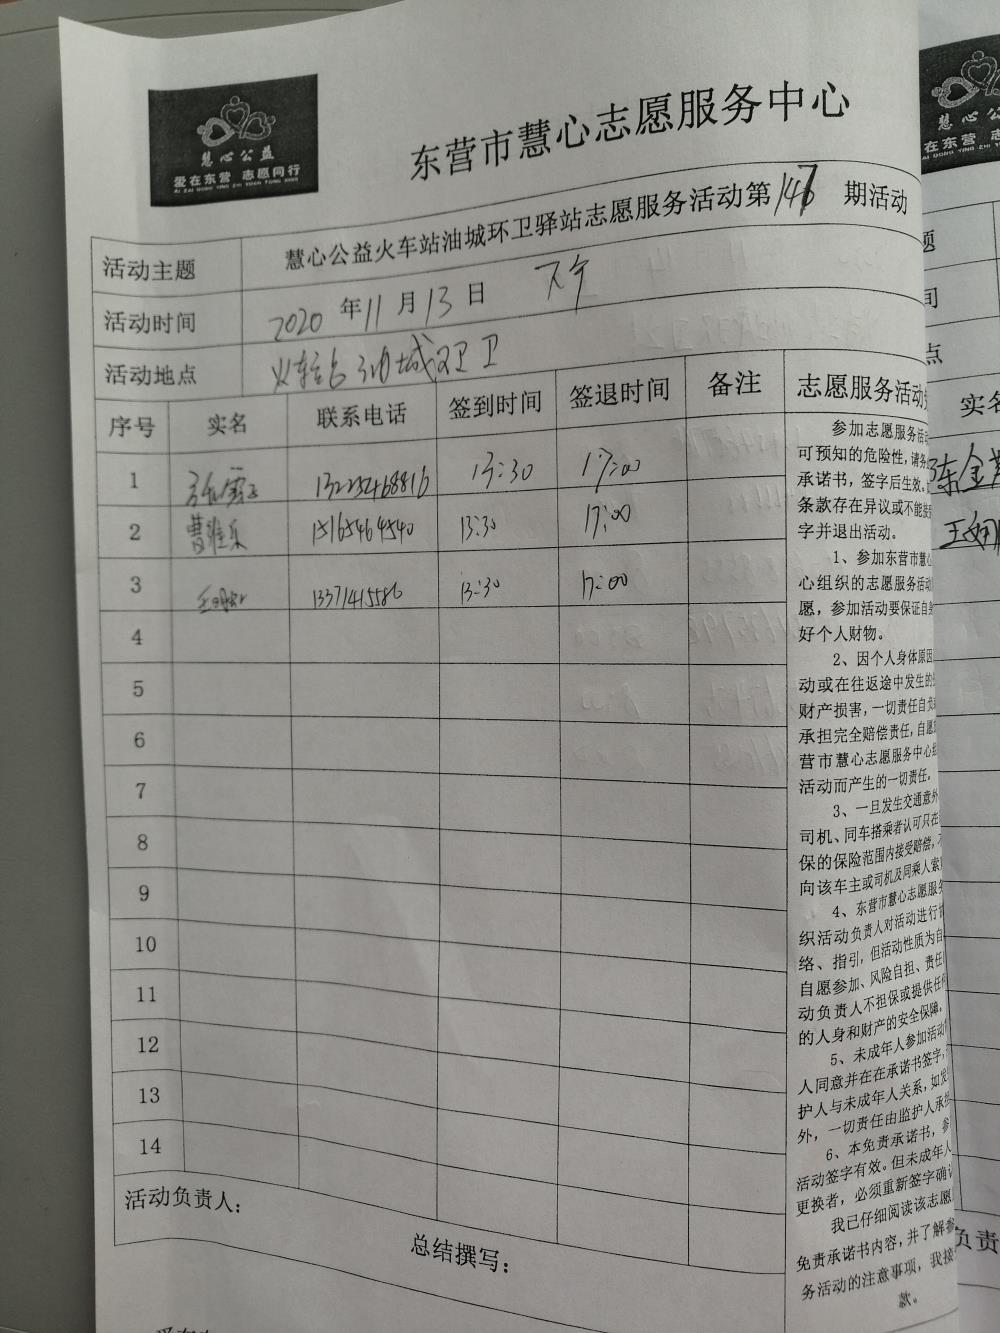 慧心公益
爱在东营 志愿同行
AI ZAI DONG YING ZHI YUAN TONG XING
东营市慧心志愿服务中心
活动主题 慧心公益火车站油城环卫驿站志愿服务活动第147期活动
活动时间 2020年11月13日 下午
活动地点 火车站油城环卫
序号 实名 联系电话 签到时间 签退时间 备注 志愿服务活动
1 13:30 17:00
2 曹雅乐 15165464540 13:30 17:00
3 13371415586 13:30 17:00
4
5
6
7
8
9
10
11
12
13
14
活动负责人：
总结撰写：
参加志愿服务活动
可预知的危险性，请务
承诺书，签字后生效。
条款存在异议或不能接
字并退出活动。
1、参加东营市慧心
心组织的志愿服务活动
愿，参加活动要保证自身
好个人财物。
2、因个人身体原因
动或在往返途中发生的
财产损害，一切责任自负
承担完全赔偿责任，自愿
营市慧心志愿服务中心
活动而产生的一切责任，
3、一旦发生交通意外
司机、同车搭乘者认可只在
保的保险范围内接受赔偿，不
向该车主或司机及同乘人索
4、东营市慧心志愿服务
织活动负责人对活动进行
络、指引，但活动性质为自
自愿参加、风险自担、责任
动负责人不担保或提供任何
的人身和财产的安全保障。
5、未成年人参加活动
人同意并在在承诺书签字，
护人与未成年人关系，如发
外，一切责任由监护人承担
6、本免责承诺书，参
活动签字有效。但未成年人
更换者，必须重新签字确认
我已仔细阅读该志愿
免责承诺书内容，并了解参
务活动的注意事项，我接
慧心公
在东营
题
间
点
实名
陈金
负责